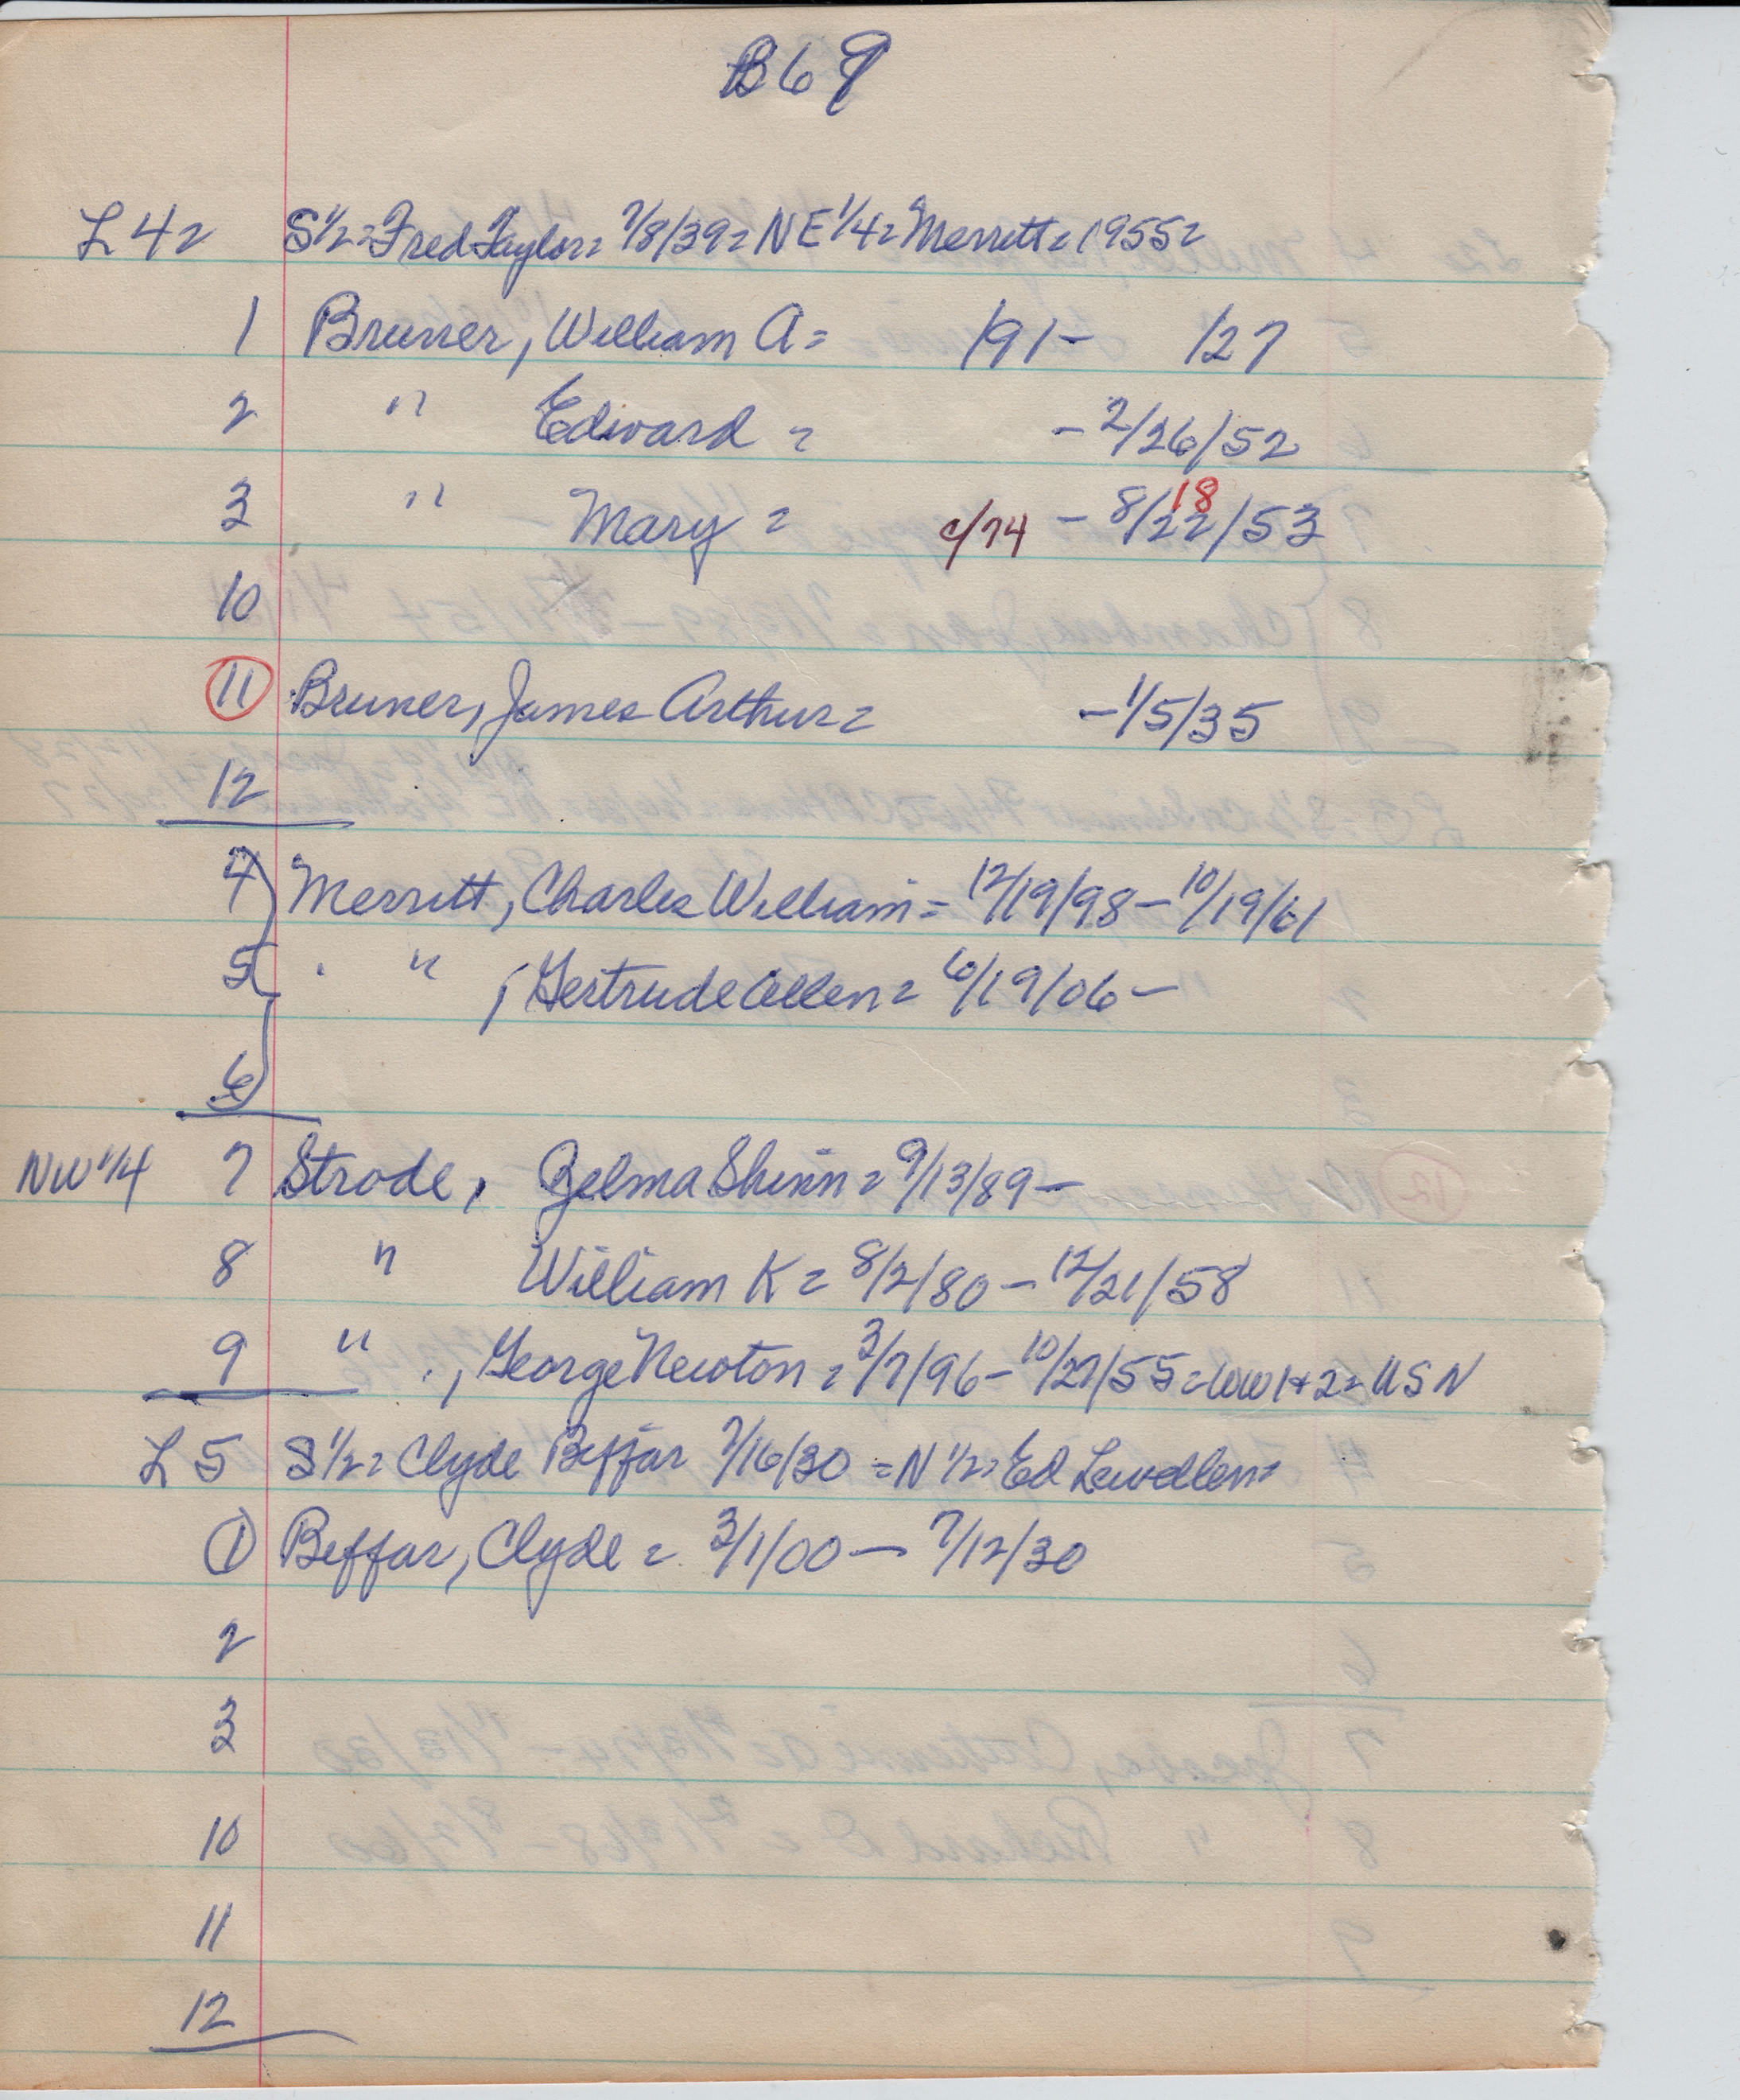 B69
L4= S½=Fred Taylor= 7/8/39= NE¼= Merritt= 1955=
1 Bruner, William A= 191- 127
2 " Edward = - 2/26/52
3 " Mary = c/74 - 8/22/53 18
10
11 Bruner, James Arthur= - 1/5/35
12
4 Merritt, Charles William = 12/19/98 - 10/19/61
5 " , Gertrude Allen = 6/19/06 -
6
NW¼ 7 Strode, Zelma Shinn = 9/13/89 -
8 " William K = 8/2/80 - 12/21/58
9 " , George Newton = 3/7/96 - 10/27/55 = WW1+2= USN
L5 S½= Clyde Beffar 7/16/30 = N½= Ed Lewellen=
1 Beffar, Clyde = 3/1/00 - 7/12/30
2
3
10
11
12